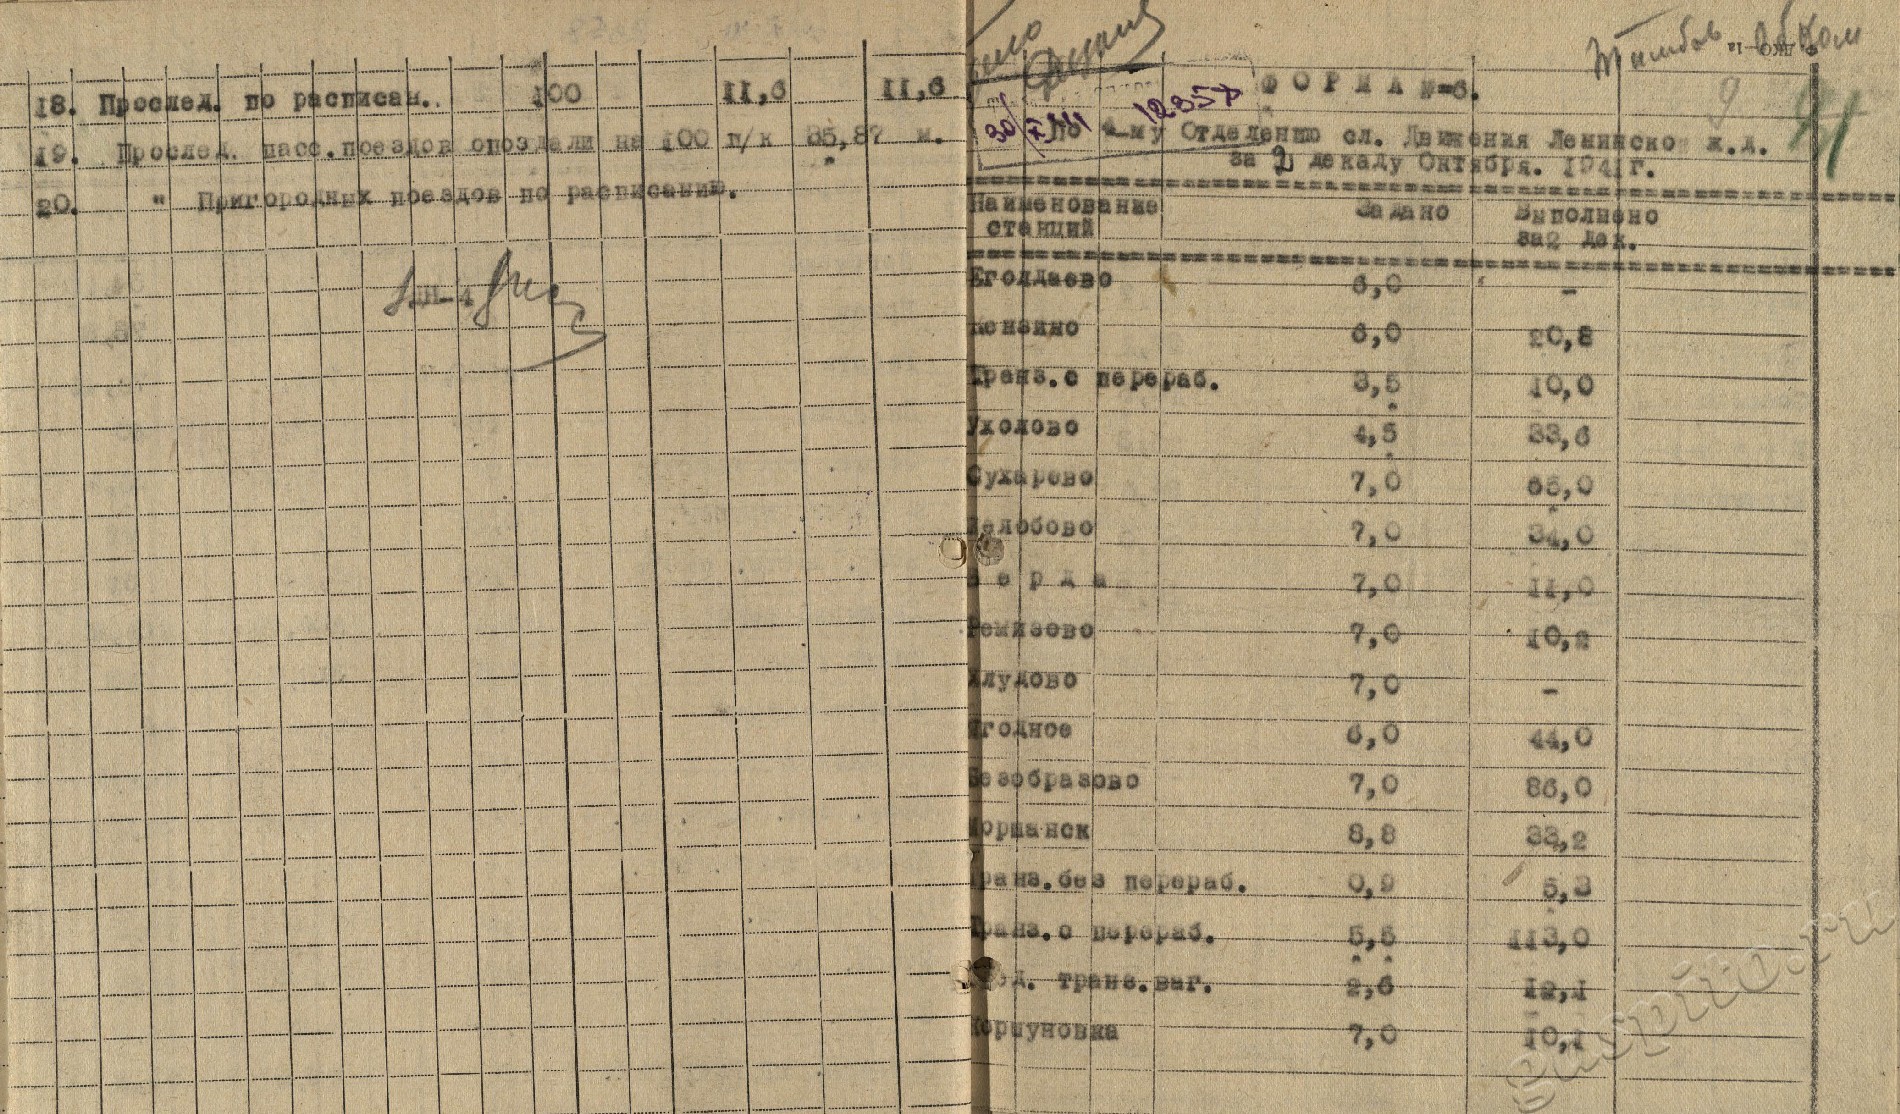 18. Прослед. по расписан.. 100 11,6 11,6
19. Прослед. пасс.поездов опоздали на 100 п/к 35,87 м.
20. " Пригородных поездов по расписанию.
ДН-4
Тамбов Обком
9
ФОРМА №-6.
12357
30/X 41
По 4-му Отделению сл. Движения Ленинско ж.д.
за 2 декаду Октября. 1941г.
Наименование станций Задано Выполнено за2 дек.
Еголдаево 6,0 -
Кензино 6,0 20,8
Транз.с перераб. 3,5 10,0
Ухолово 4,5 33,6
Сухарево 7,0 65,0
Желобово 7,0 34,0
Верда 7,0 11,0
Ремизово 7,0 10,2
Хлудово 7,0 -
Ягодное 6,0 44,0
Безобразово 7,0 86,0
Моршанск 8,8 33,2
Транз.без перераб. 0,9 5,3
Транз.с перераб. 5,5 113,0
Сред. транз.ваг. 2,6 12,1
Коршуновка 7,0 10,1
gaspito.ru